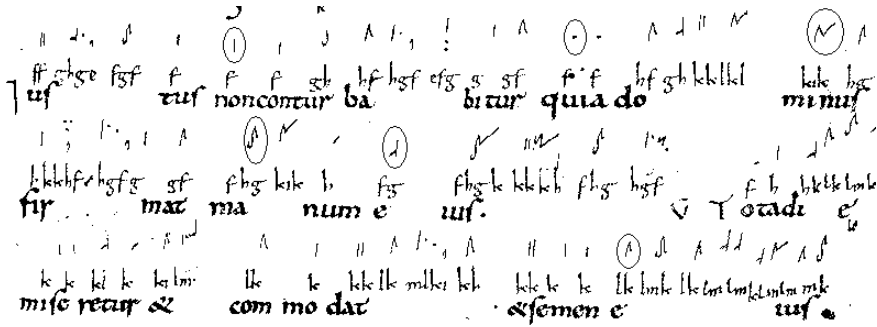 ff ghge fgf f f f gh hf hgf efg g gf f f hf gh kklkl kik hg
Ius tus nonconturba bitur quia do minus
hgfg gf fhg kik h fg fhgk fhg hgf f h
fir mat ma num e ius. V Totadi e
k k kl k lk k kk lk kh kk k k lk lmk lk lm mk
mise retur & com mo dat &semen e ius.